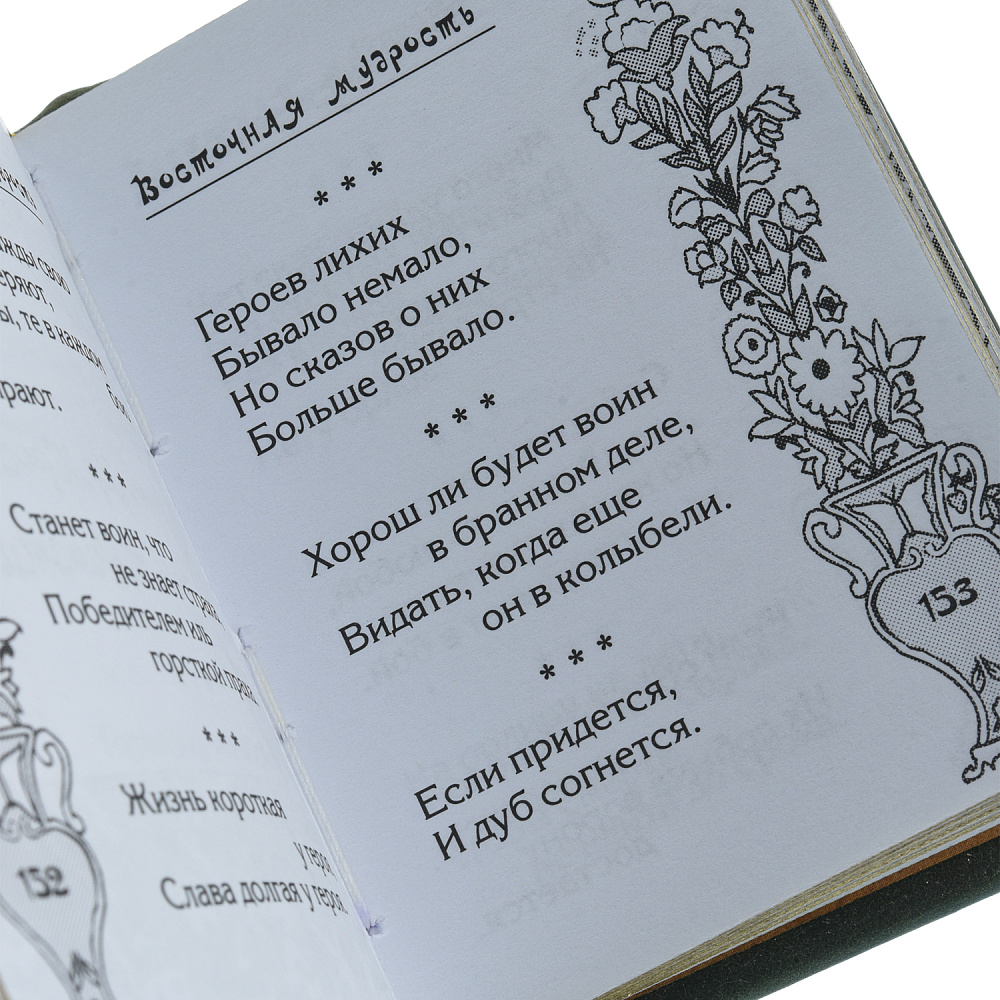 жды свою
еряют,
ы, те в каждом
бою
рают.
* * *
Станет воин, что
не знает страха,
Победителем иль
горсткой праха
* * *
Жизнь короткая
у героя
Слава долгая у героя.
152
Восточная мудрость
* * *
Героев лихих
Бывало немало,
Но сказов о них
Больше бывало.
* * *
Хорош ли будет воин
в бранном деле,
Видать, когда еще
он в колыбели.
* * *
Если придется,
И дуб согнется.
153